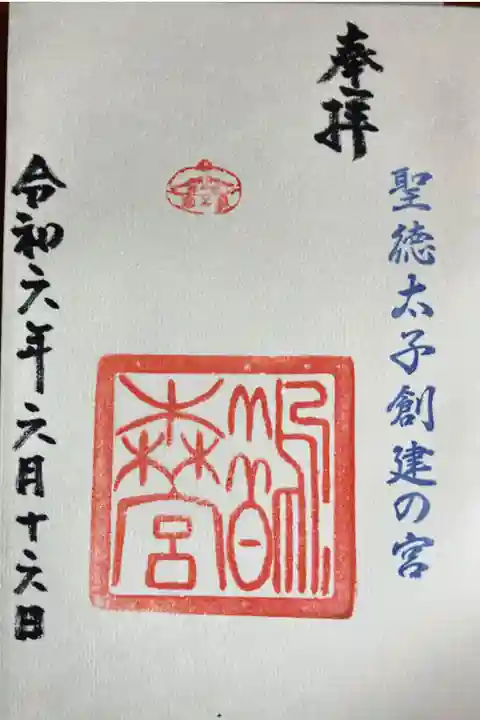 奉拝
聖徳太子創建の宮
鵲森宮
令和六年六月十六日